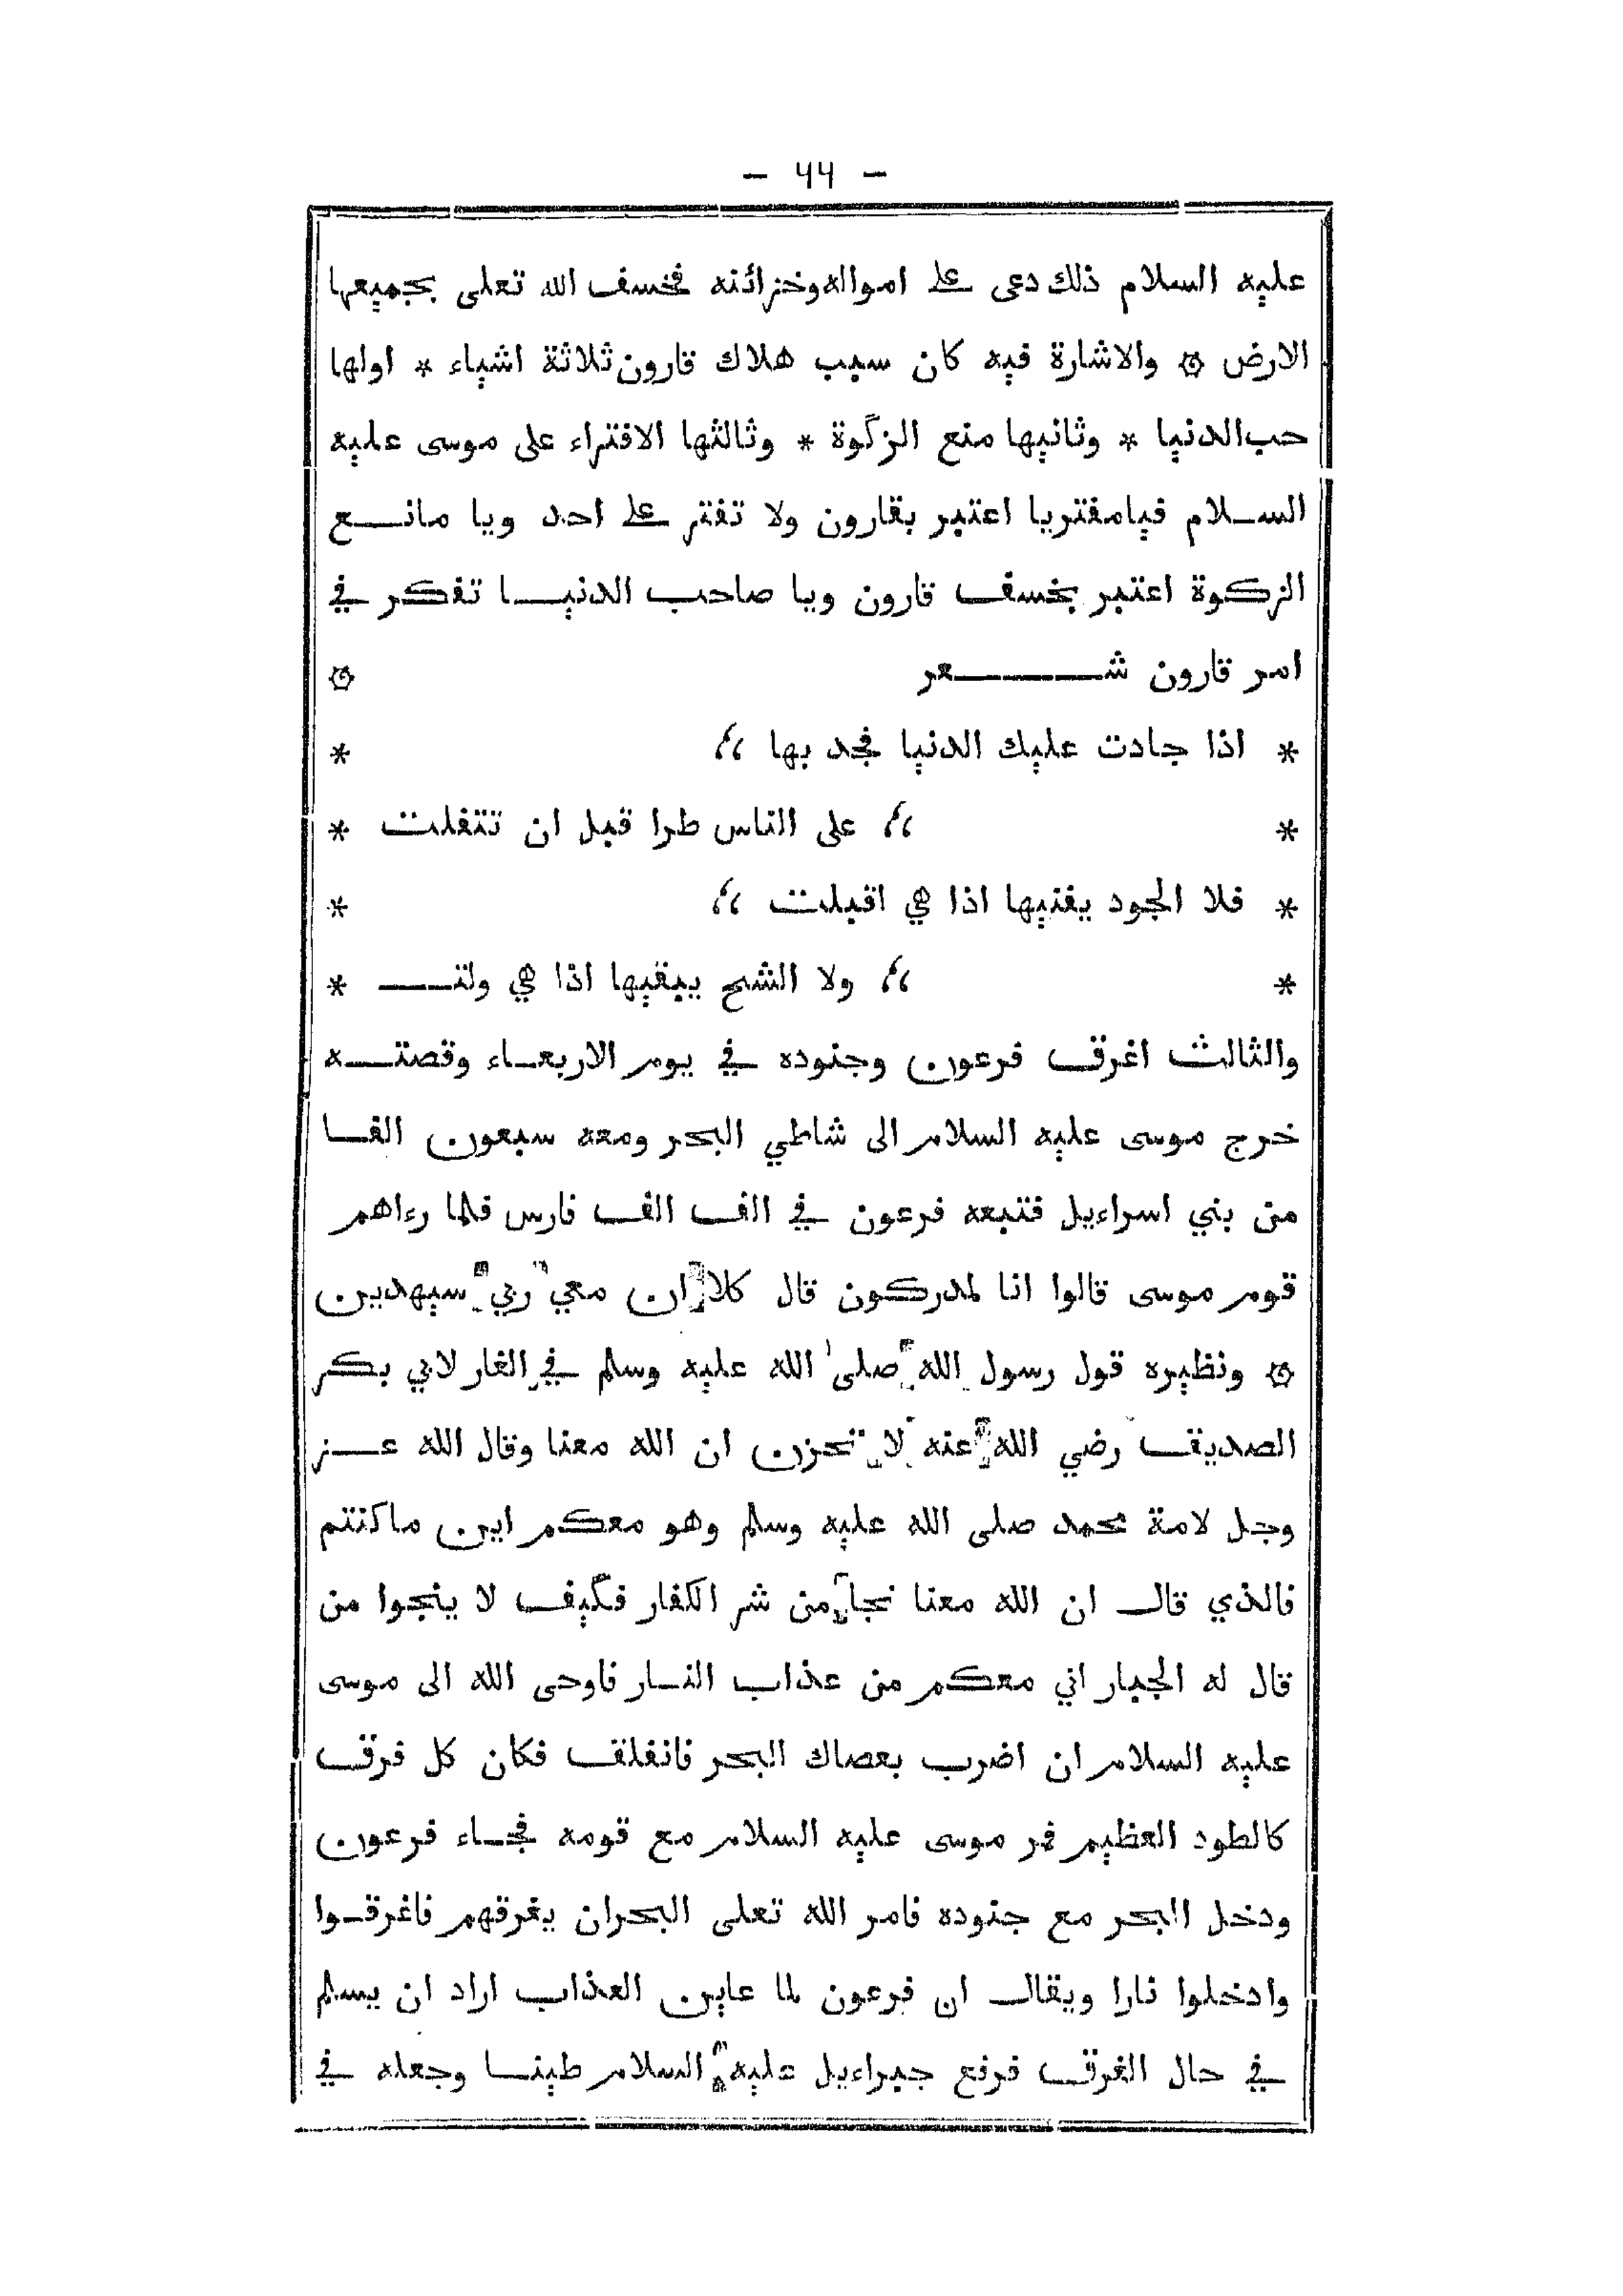 — ٤٤ —
عليه السلام ذلك دعى على امواله وخزائنه فخسف الله تعلى بجميعها
الارض ۞ والاشارة فيه كان سبب هلاك قارون ثلاثة اشياء * اولها
حب الدنيا * وثانيها منع الزكوة * وثالثها الافتراء على موسى عليه
السلام فيامفتريا اعتبر بقارون ولا تفتر على احد ويا مانع
الزكوة اعتبر بخسف قارون ويا صاحب الدنيا تفكر في
امر قارون شعر ۞
* اذا جادت عليك الدنيا فجد بها *
* على الناس طرا قبل ان تتفلت *
* فلا الجود يفنيها اذا هي اقبلت *
* ولا الشح يبقيها اذا هي ولت *
والثالث اغرق فرعون وجنوده في يوم الاربعاء وقصته
خرج موسى عليه السلام الى شاطي البحر ومعه سبعون الفا
من بني اسراءيل فتبعه فرعون في الف الف فارس فلما رءاهم
قوم موسى قالوا انا لمدركون قال كلا ان معي ربي سيهدين
۞ ونظيره قول رسول الله صلى الله عليه وسلم في الغار لابي بكر
الصديق رضي الله عنه لا تحزن ان الله معنا وقال الله عز
وجل لامة محمد صلى الله عليه وسلم وهو معكم اين ماكنتم
فالذي قال ان الله معنا نجا من شر الكفار فكيف لا ينجوا من
قال له الجبار اني معكم من عذاب النار فاوحى الله الى موسى
عليه السلام ان اضرب بعصاك البحر فانفلق فكان كل فرق
كالطود العظيم فمر موسى عليه السلام مع قومه فجاء فرعون
ودخل البحر مع جنوده فامر الله تعلى البحران يغرقهم فاغرقوا
وادخلوا نارا ويقال ان فرعون لما عاين العذاب اراد ان يسلم
في حال الغرق فرفع جبراءيل عليه السلام طينا وجعله في